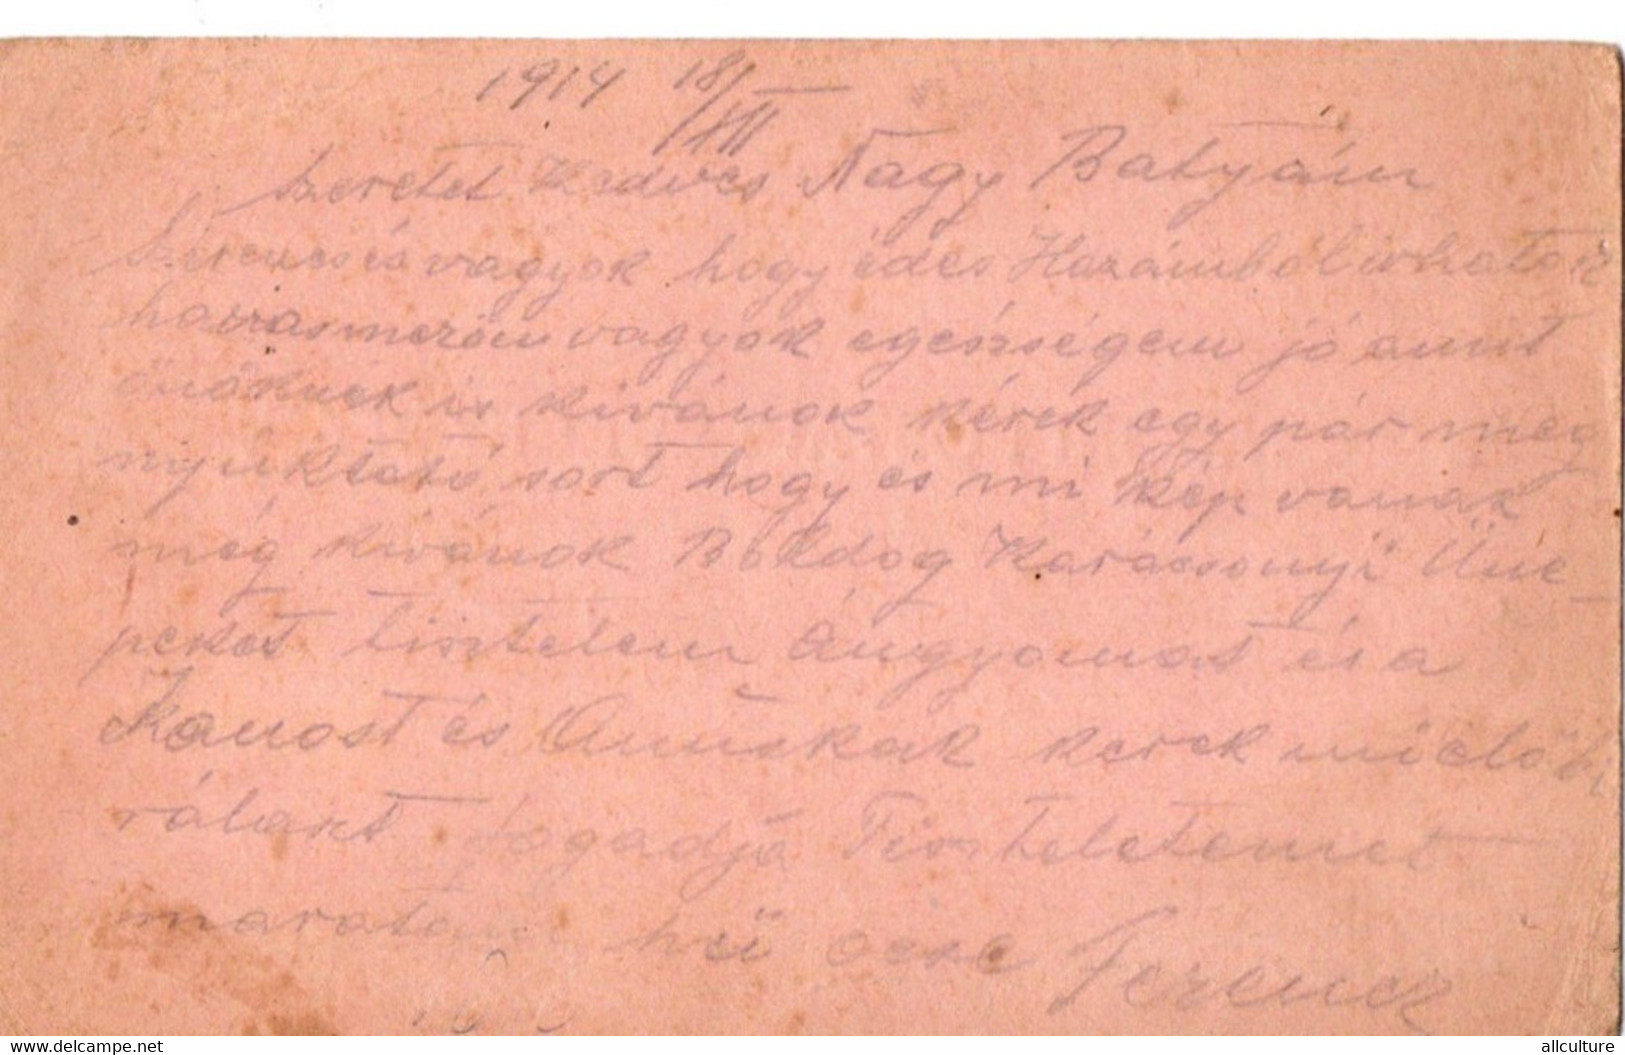 1914 18/XII
Szeretet Kedves Nagy Batyám
Szerencsés vagyok hogy édes Hazámból irhatok
vagyok egessségem jó amit
önöknek is kivánok kérek egy pár meg
nyuktató sort hogy és mi kép vanak
még kivánok Boldog Karácsonyi Üne
peket tisztelem Ángyomat és a
Janost és Annuskak kerek mielöbi
választ fogadja Tiszteletemet
maratam hü öcse Ferencz
www.delcampe.net
allculture